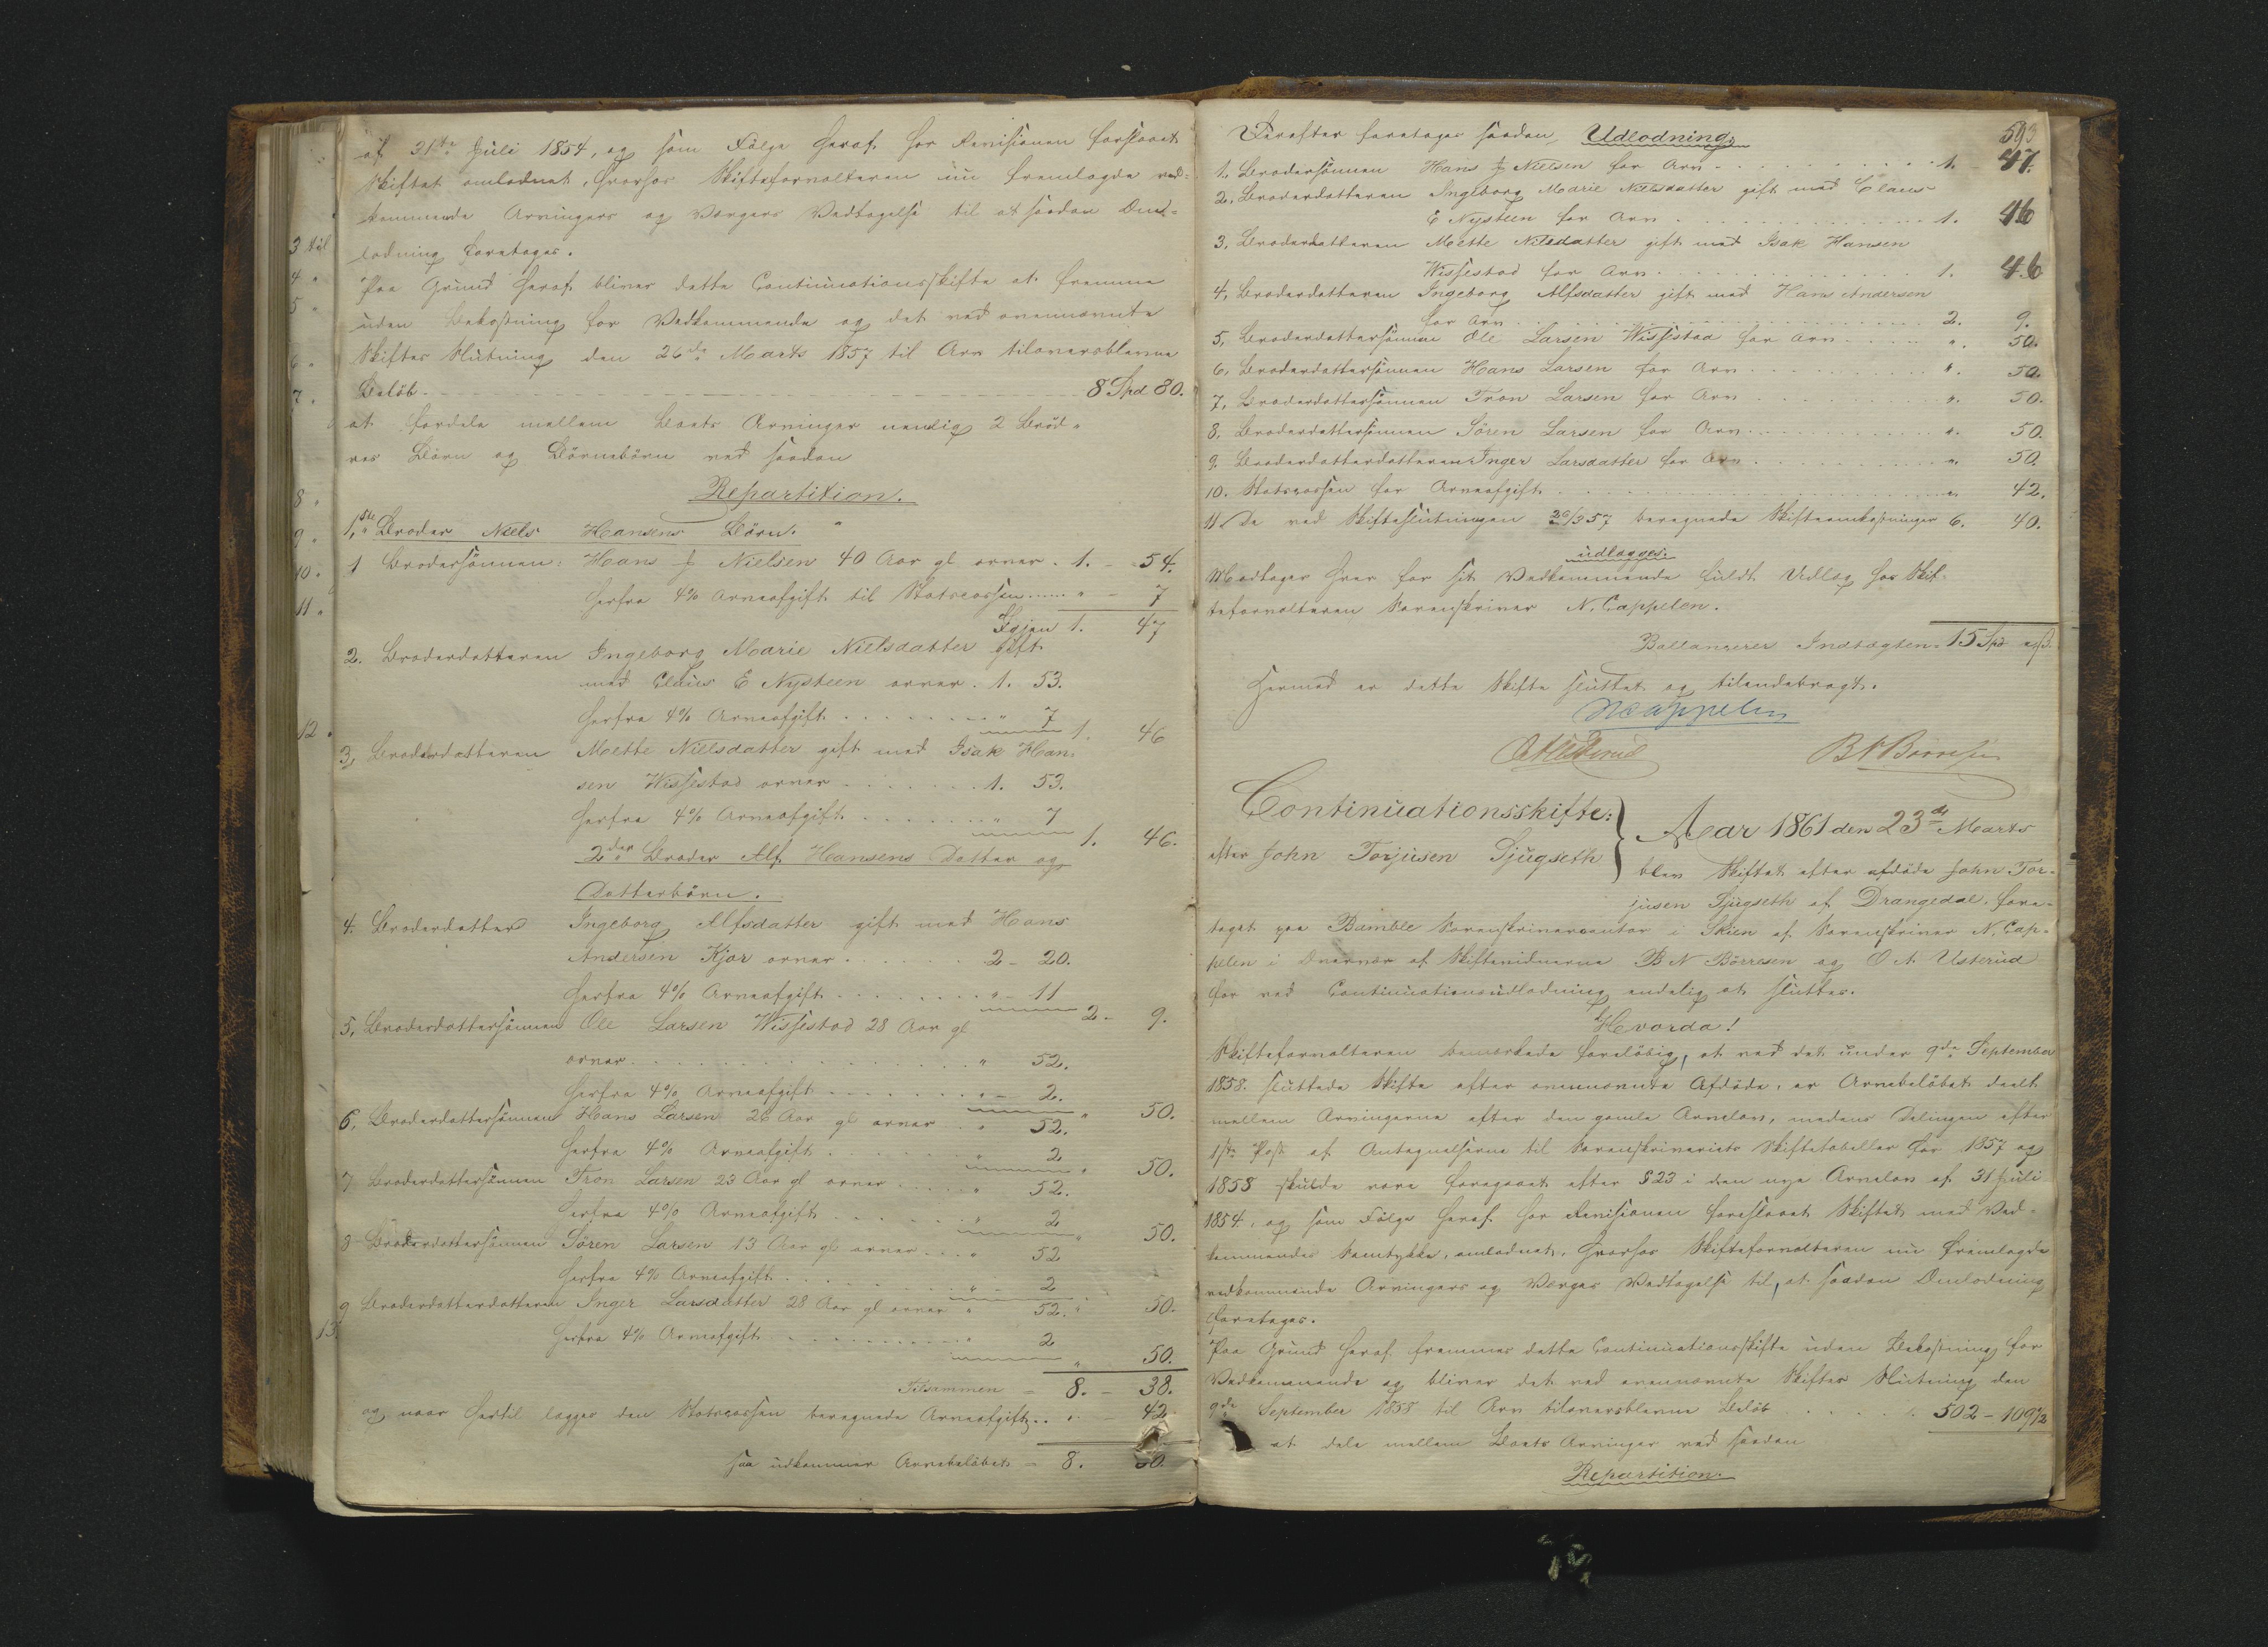 af 31te Juli 1854, og som Følge heraf har Revisionen forlangt
Skiftet omlodnet, hvorfor Skifteforvalteren nu fremlagde ved-
kommende Arvingers og Værgers Vedtagelse til at saadan Om-
lodning foretages.
Paa Grund heraf bliver dette Continuationsskifte at fremme
uden Bekostning for Vedkommende og det ved ovennævnte
Skiftes Slutning den 26de Marts 1857 til Arv tiloversblevne
Beløb 8 Spd 80.
at fordele mellem Boets Arvinger nemlig 2 Brød-
res Børn og Børnebørn ved saadan
Repartition.
1ste Broder Niels Hansens Børn.
1 Brodersønnen: Hans J Nielsen 40 Aar gl arver . 1. - 54.
herfra 4% Arveafgift til Statscassen " - 7
Igjen 1. 47
2. Broderdatteren Ingeborg Marie Nielsdatter gift
med Claus E Nysteen arver . 1. 53.
herfra 4% Arveafgift " 7
1. 46
3, Broderdatteren Mette Nielsdatter gift med Isak Han-
sen Wissestad arver 1. 53.
herfra 4% Arveafgift " 7
1. 46.
2den Broder Alf Hansens Datter og
Datterbørn.
4. Broderdatter Ingeborg Alfsdatter gift med Hans
Andersen Kjær arver 2 - 20.
herfra 4% Arveafgift " - 11
2 - 9.
5, Broderdattersønnen Ole Larsen Wissestad 28 Aar gl
arver " 52.
herfra 4% Arveafgift " - 2.
" 50.
6, Broderdattersønnen Hans Larsen 26 Aar gl arver " 52.
herfra 4% Arveafgift " 2
" 50.
7 Broderdattersønnen Tron Larsen 23 Aar gl arver " 52.
herfra 4% Arveafgift " 2
" 50.
8 Broderdattersønnen Søren Larsen 13 Aar gl arver " 52
herfra 4% Arveafgift " - 2
" 50.
9 Broderdatterdatteren Inger Larsdatter 28 Aar gl arver " 52.
herfra 4% Arveafgift " 2
" 50.
Tilsammen = 8. - 38.
og naar hertil lægges den Statscassen beregnede Arveafgift " - 42
saa udkommer Arvebeløbet = 8. 80.
3 til
4 "
5 "
6 "
7 "
8 "
9 "
10 "
11 "
12 "
13
593
Derefter foretages saadan Udlodning:
1. Brodersønnen Hans J Nielsen for Arv 1. - 47.
2. Broderdatteren Ingeborg Marie Nielsdatter gift med Claus
E Nysteen for Arv 1. 46
3. Broderdatteren Mette Nilsdatter gift med Isak Hansen
Wissestad for Arv 1. 46
4, Broderdatteren Ingeborg Alfsdatter gift med Hans Andersen
for Arv 2. 9.
5, Broderdattersønnen Ole Larsen Wissestad for Arv ". 50.
6, Broderdattersønnen Hans Larsen for Arv ". 50.
7, Broderdattersønnen Tron Larsen for Arv ". 50.
8. Broderdattersønnen Søren Larsen for Arv ". 50.
9. Broderdatterdatteren Inger Larsdatter for Arv ". 50.
10. Statscassen for Arveafgift ". 42.
11 De ved Skifteslutningen 26/3 57 beregnede Skifteomkostninger 6. 40.
udlægges:
Modtager hver for sit Vedkommende fuldt Udlæg hos Skif-
teforvalteren Sorenskriver N. Cappelen.
Ballancerer Indtægten = 15 Spd
Hermed er dette Skifte sluttet og tilendebragt.
NCappelen
OAUsterud BNBørresen
Continuationsskifte:
efter John Torjusen Sjugseth
Aar 1861 den 23de Marts
blev Skiftet efter afdøde John Tor-
jusen Sjugseth af Drangedal, fore-
taget paa Bamble Sorenskrivercontor i Skien af Sorenskriver N. Cap-
pelen i Overvær af Skiftevidnerne B N Børresen og O A Usterud
for ved Continuationsudlodning endelig at sluttes.
Hvorda!
Skifteforvalteren bemærkede foreløbig, at ved det under 9de September
1858 sluttede Skifte efter ovennævnte Afdøde, er Arvebeløbet deelt
mellem Arvingerne efter den gamle Arvelov, medens Delingen efter
1ste Post af Antegnelserne til Sorenskriveriets Skiftetabeller for 1857 og
1858 skulde være foregaaet efter § 23 i den nye Arvelov af 31 Juli
1854, og som Følge heraf har Revisionen foreslaaet Skiftet med Ved-
kommendes Samtykke, omlodnet, hvorfor Skifteforvalteren nu fremlagde
vedkommende Arvingers og Værges Vedtagelse til, at saadan Omlodning
foretages.
Paa Grund heraf fremmes dette Continuationsskifte uden Bekostning for
Vedkommende og bliver det ved ovennævnte Skiftes Slutning den
9de September 1858 til Arv tiloversblevne Beløb 502 - 109 1/2
at dele mellem Boets Arvinger ved saadan
Repartition.